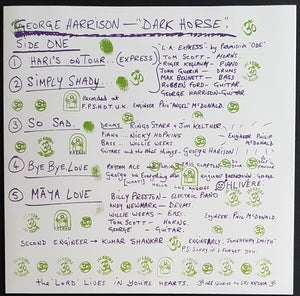 GEORGE HARRISON — "DARK HORSE"
SIDE ONE
1 HARI'S ON TOUR... (EXPRESS)
L.A EXPRESS - by Permission 'ODE'
TOM SCOTT - HORNS.
ROGER KELLAWAY - PIANO
JOHN GUERIN - DRUMS
MAX BENNETT - BASS
ROBBEN FORD - GUITAR.
GEORGE HARRISON - GUITAR
2 SIMPLY SHADY...
Recorded at
F.P.S.H.O.T. U.K. ENGINEER PHIL 'ANGEL' McDONALD.
3 SO SAD.
DRUMS RINGO STARR & JIM KELTNER
PIANO - NICKY HOPKINS
BASS - WILLIE WEEKS
ENGINEER PHILIP McDONALD.
GEORGE HARRISON
4 BYE BYE, LOVE
RHYTHM ACE
ERIC CLAPTON
George on Everything else
OHLIVERE.
5 MĀYA LOVE
BILLY PRESTON - ELECTRIC PIANO
ANDY NEWMARK - DRUMS
WILLIE WEEKS - BASS.
TOM SCOTT - HORNS.
GEORGE - GUITAR.
ENGINEER Phil McDONALD.
SECOND ENGINEER → KUMAR SHANKAR
ENGINEARLY: "JONOTHON SMITH"
P.S. Sorry if I forgot you
the LORD LIVES IN YOURS HEARTS.